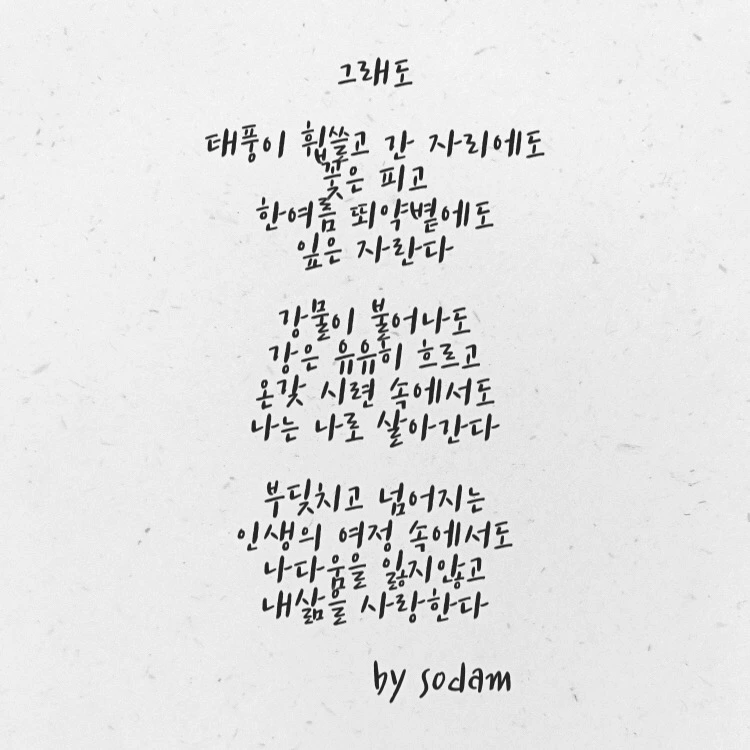 그래도
태풍이 휩쓸고 간 자리에도
꽃은 피고
한여름 뙤약볕에도
잎은 자란다
강물이 불어나도
강은 유유히 흐르고
온갖 시련 속에서도
나는 나로 살아간다
부딪치고 넘어지는
인생의 여정 속에서도
나다움을 잃지않고
내삶을 사랑한다
by sodam